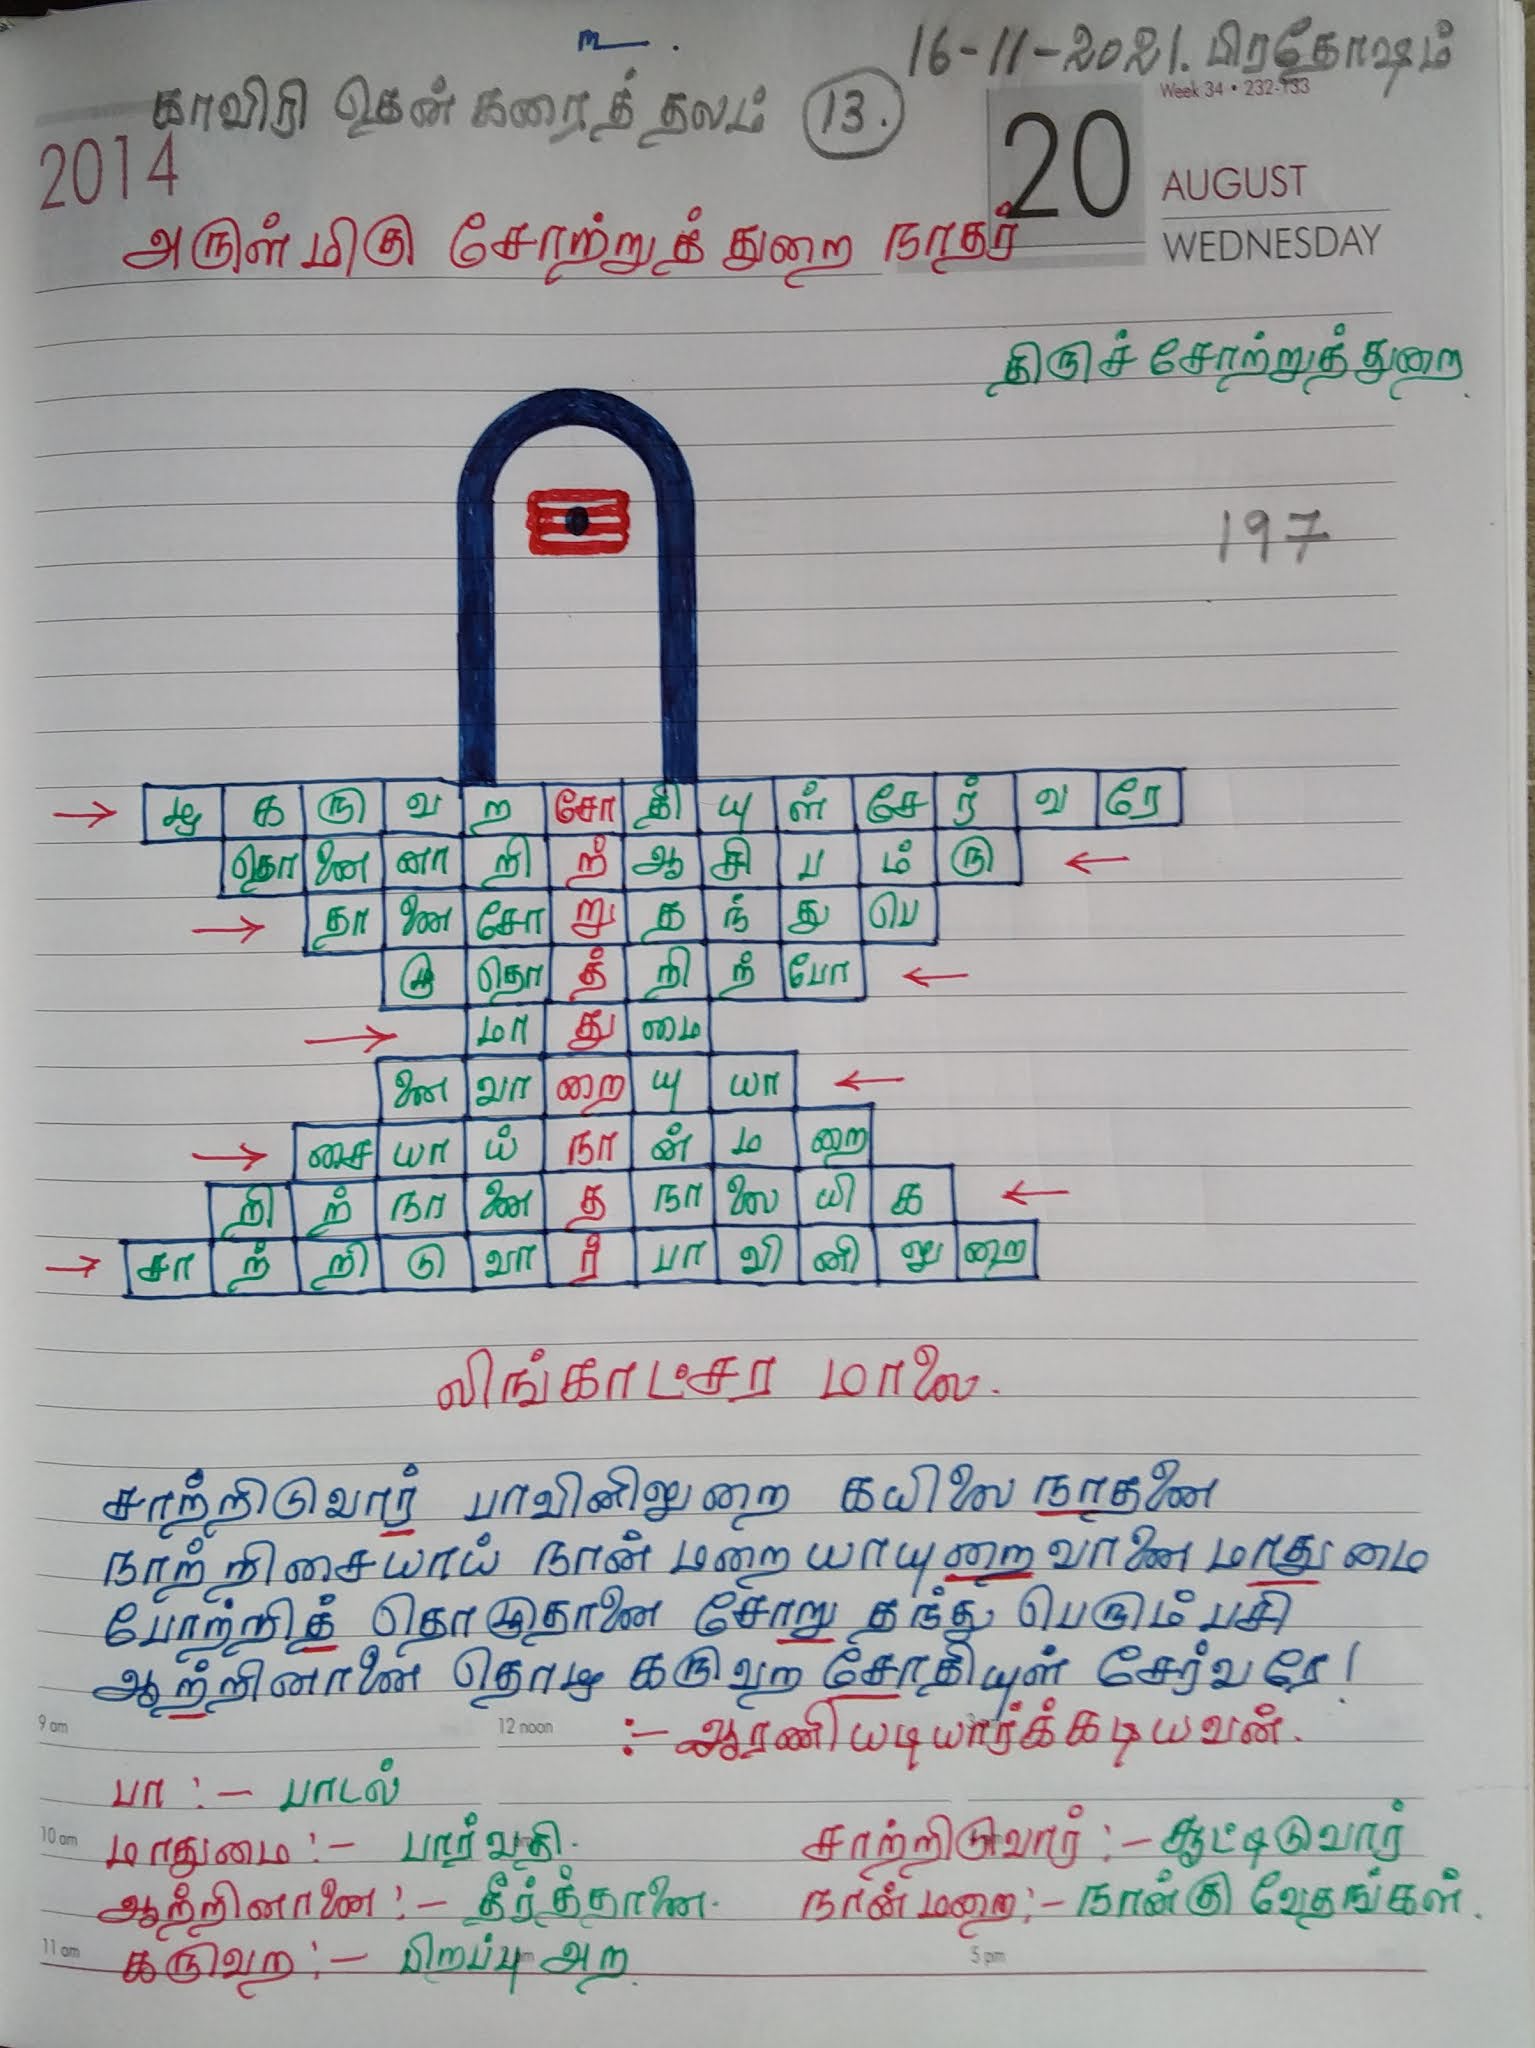 உ
16-11-2021. பிரதோஷம்
Week 34 • 232-133
காவிரி தென் கரைத் தலம் 13.
2014
20
AUGUST
WEDNESDAY
அருள்மிகு சோற்றுத் துறை நாதர்
திருச் சோற்றுத் துறை.
197
→ ழ க ரு வ ற சோ தி யு ள் சே ர் வ ரே
தொ னை னா றி ற் ஆ சி ப ம் ரு ←
→ தா னை சோ று த ந் து பெ
ழு தொ த் றி ற் போ ←
→ மா து மை
னை வா றை யு யா ←
→ சை யா ய் நா ன் ம றை
றி ற் நா னை த நா லை யி க ←
→ சா ற் றி டு வா ர் பா வி னி லு றை
லிங்காட்சர மாலை.
சாற்றிடுவார் பாவினிலுறை கயிலை நாதனை
நாற்றிசையாய் நான் மறை யாயுறை வானை மாதுமை
போற்றித் தொழுதானை சோறு தந்து பெரும் பசி
ஆற்றினானை தொழ கருவற சோதியுள் சேர்வரே!
:- ஆரணியடியார்க்கடியவன்.
9 am
12 noon
பா :- பாடல்
10 am
மாதுமை :- பார்வதி.
சாற்றிடுவார் :- சூட்டிடுவார்
ஆற்றினானை :- தீர்த்தானை.
நான்மறை :- நான்கு வேதங்கள்.
11 am
கருவற :- பிறப்பு அற
5 pm